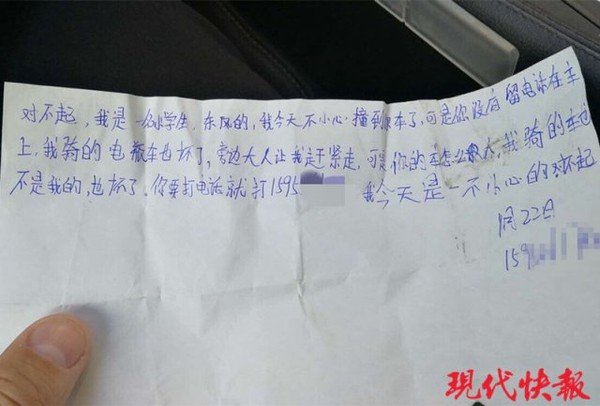 对不起，我是一名小学生，东风的，我今天不小心撞到你车了，可是你没有留电话在车
上，我骑的电瓶车也坏了，旁边大人让我赶紧走，可是你的车怎么办，我骑的车也
不是我的，也坏了，你要打电话就打1595 我今天是一不小心的对不起
1月22日
159
现代快報